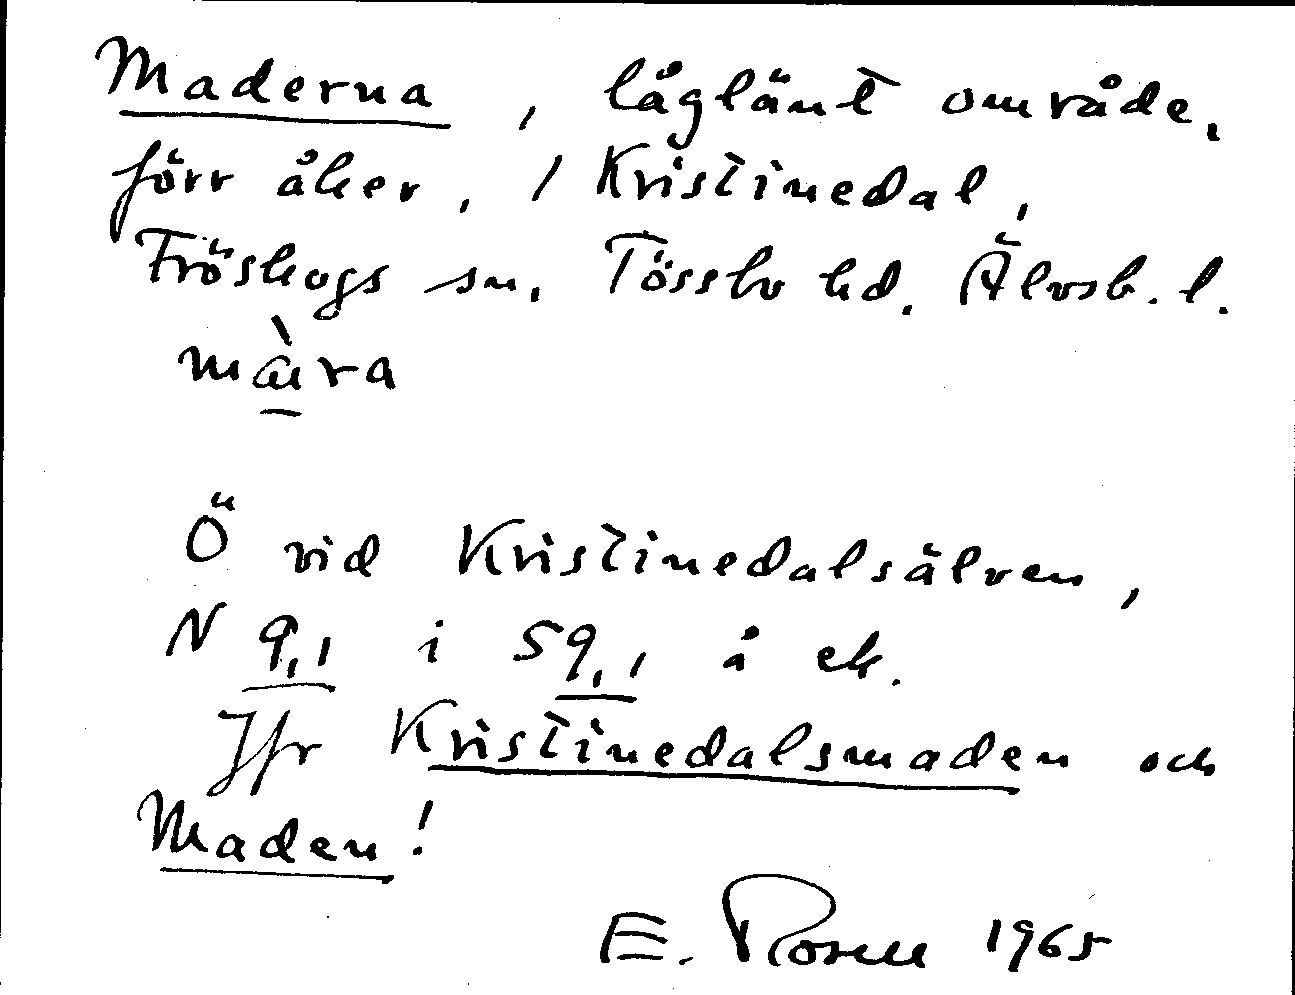 Maderna, låglänt område,
förr åker, / Kristinedal,
Fröskogs sn. Tössbo hd. Älvsb. l.
màra
Ö vid Kristinedalsälven,
N 9,1 i S9,1 å ek.
Jfr Kristinedalsmaden och
Maden!
E. Rosen 1965